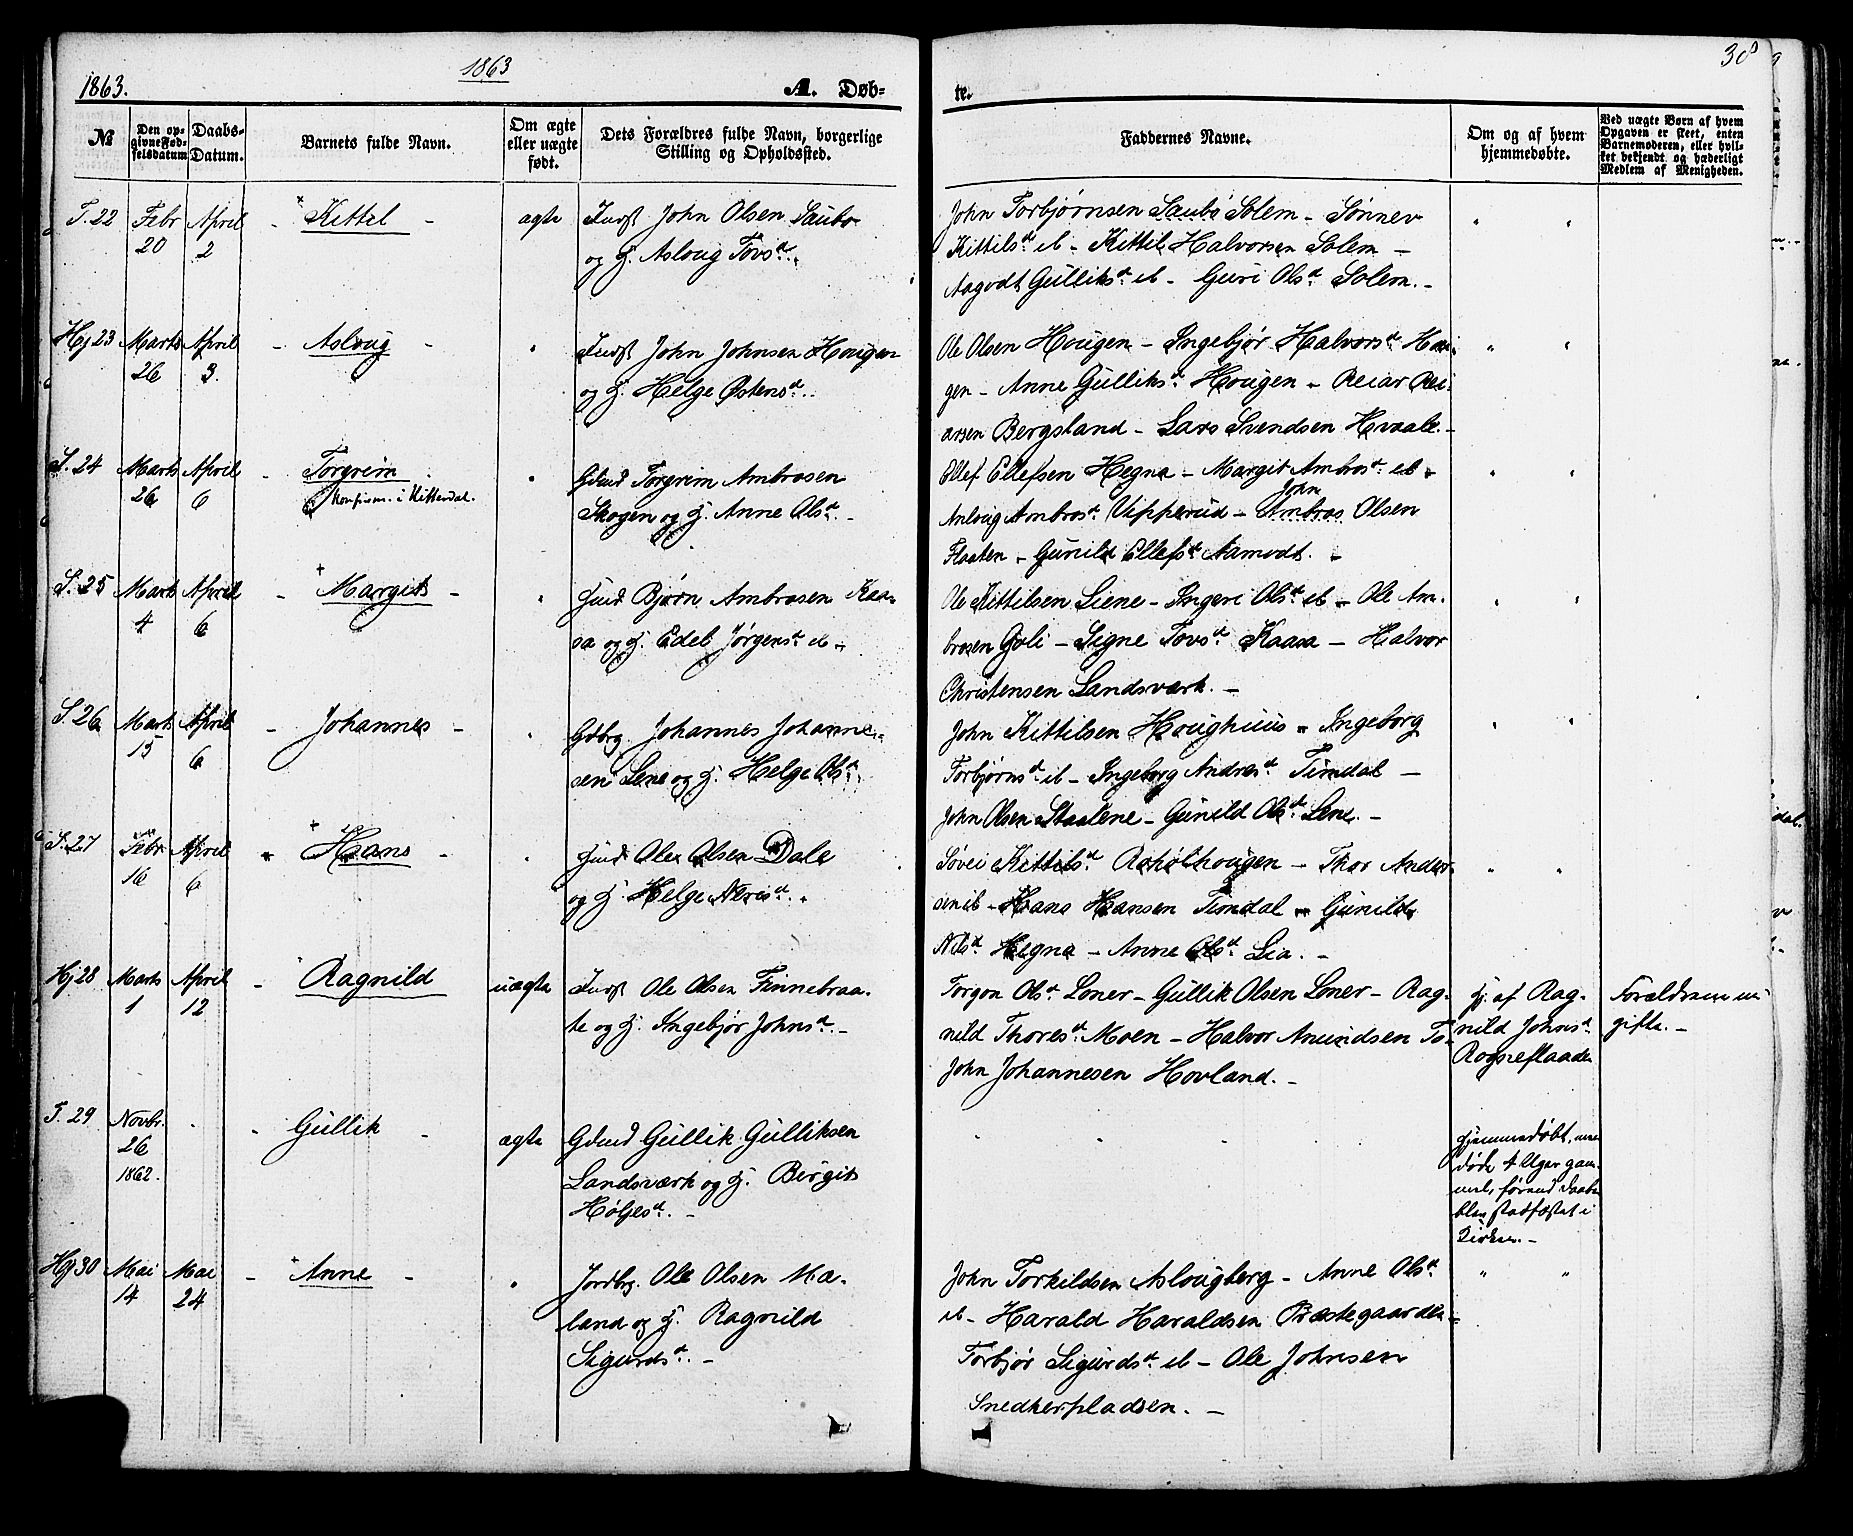 1863.
1863
A. Døb-
te.
38
№
Den op-
givne Fød-
selsdatum
Daabs-
Datum.
Barnets fulde Navn.
Om ægte
eller uægte
født.
Dets Forældres fulde Navn, borgerlige
Stilling og Opholdssted.
Faddernes Navne.
Om og af hvem
hjemmedøbte.
Ved uægte Børn af hvem
Opgaven er skeet, enten
Barnemoderen, eller hvil-
ket bekjendt og hæderligt
Medlem af Menigheden.
T. 22 Febr 20 April 2 - Kittel - ægte Indst John Olsen Saubo
og H. Aslaug Tovsd.
John Torbjørnsen Saubø Solem - Sønnev
Kittilsd. ib - Kittil Halvorsen Solem -
Aagodt Gulliksd. ib - Guri Olsd. Solem. -
Hj 23 Marts 26 April 3. - Asloug - " Indst John Johnsen Hougen
og H. Helge Østensd.
Ole Olsen Hougen - Ingebjør Halvorsd. Hou-
gen - Anne Gulliksd. Hougen - Reiar Rei-
arsen Bergsland - Lars Svendsen Hvaale. -
S. 24 Marts 26 April 6 - Torgrim " Gdmd Torgrim Ambrosen
Konfirm. i Hitterdal.
Skogen og H. Anne Olsd. -
Ellef Ellefsen Hegna - Margit Ambrosd. ib -
John
Anlaug Ambrosd. Vipperud - Ambros Olsen
Flaaten - Gunild Ellefsd. Aamodt. -
S. 25 Marts 4 April 6 - Margit - " Huusd. Bjørn Ambrosen Kaa-
sa og H. Edel Jørgensd. ib -
Ole Kittilsen Liene - Ingeri Olsd. ib - Ole Am-
brosen Goli - Signe Tovsd. Kaasa - Halvor
Christensen Landsværk. -
S. 26 Marts 15 April 6 - Johannes - " Gdbrg. Johannes Johanne-
sen Lene og H. Helge Olsd.
John Kittilsen Houghuus - Ingeborg
Torbjørnsd. ib - Ingeborg Andresd. Timdal -
John Olsen Staalene - Gunild Olsd. Lene. -
S. 27 Febr 16 April 6 Hans - " Ole Olsen Dale
og H. Helge Nersd.
Søvei Kittilsd. Raholthougen - Thor Ander-
sen ib - Hans Hansen Timdal - Gunild
Nilsd. Hegna - Anne Olsd. Lia. -
Hj 28 Marts 1 April 12 - Ragnild uægte Indst Ole Olsen Finnebraa-
te og H. Ingebjør Johnsd. -
Torgon Olsd. Loner - Gullik Olsen Loner - Rag-
nild Thoresd. Moen - Halvor Amundsen
John Johannesen Hovland. -
Hj. af Rag-
nild Johnsd.
Rogneflaaden
Forældrene u-
gifte. -
T. 29 Novbr. 26 1862. - Gullik - ægte Gdmd Gullik Gulliksen
Landsværk og H. Birgit
Høljesd. -
Hjemmedøbt, men
døde 4 Uger gam-
mel, førend Daaben
blev stadfæstet i
Kirken. -
Hj 30 Mai 14 Mai 24 - Anne - " Jordbrg. Ole Olsen Mæ-
land og H. Ragnild
Sigurdsd. -
John Torkildsen Aslougberg - Anne Olsd.
ib - Harald Haraldsen Præstegaarden -
Torbjør Sigurdsd. ib - Ole Johnsen
Snedkerpladsen. -